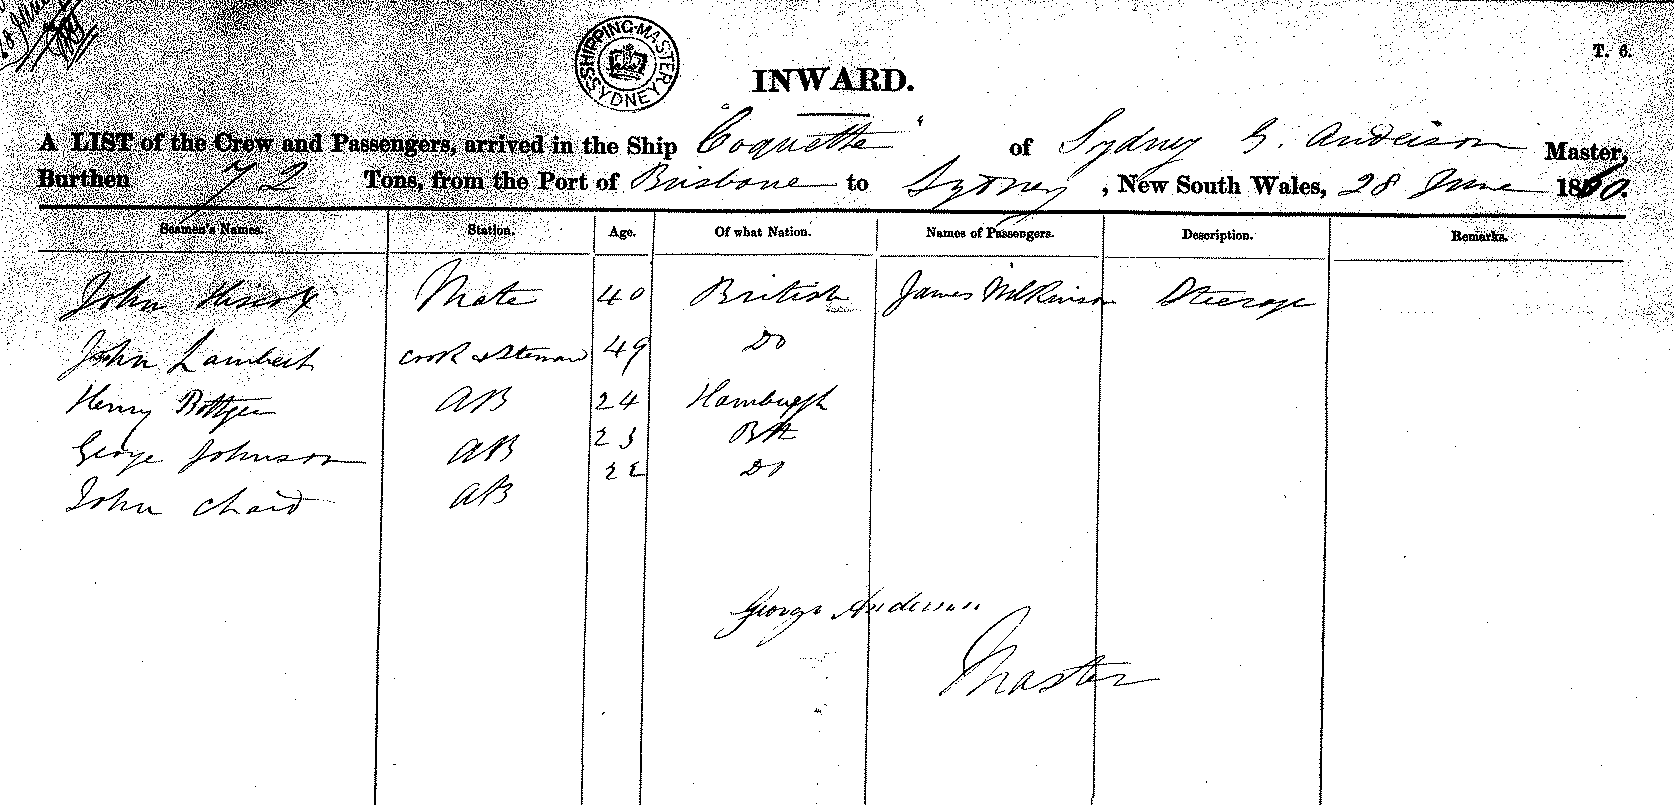 T. 6.
SHIPPING MASTER SYDNEY
INWARD.
A LIST of the Crew and Passengers, arrived in the Ship "Coquette" of Sydney G. Anderson Master,
Burthen 72 Tons, from the Port of Brisbane to Sydney, New South Wales, 28 June 18
Seamen's Names. Station. Age. Of what Nation. Names of Passengers. Description. Remarks.
John Hiscox Mate 40 British James Wilkinson Steerage
John Lambert Cook & Steward 49 Do
Henry Bottger AB 24 Hamburgh
George Johnson AB 23 Brit
John Chard AB 22 Do
George Anderson
Master